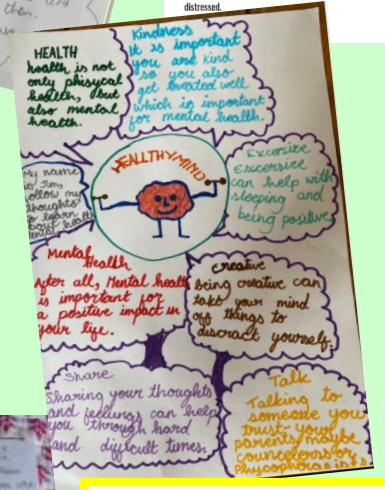 distressed.
then.
HEALTH
health is not
only phisycal
health, but
also mental
health.
Kindness
It is important
you are kind
so you also
get treated well
which is important
for mental health.
HEALTHY MIND
My name
is Jim,
follow my
thoughts
to learn
about
mental health
Excersise
Excersise
can help with
sleeping and
being positive
Mental
Health
After all, Mental health
is important for
a positive impact in
your life.
Creative
being creative can
take your mind
off things to
discract yourself.
Share
Sharing your thoughts
and feelings can help
you through hard
and difficult times.
Talk
Talking to
someone you
trust-your
parents, maybe
councelours or